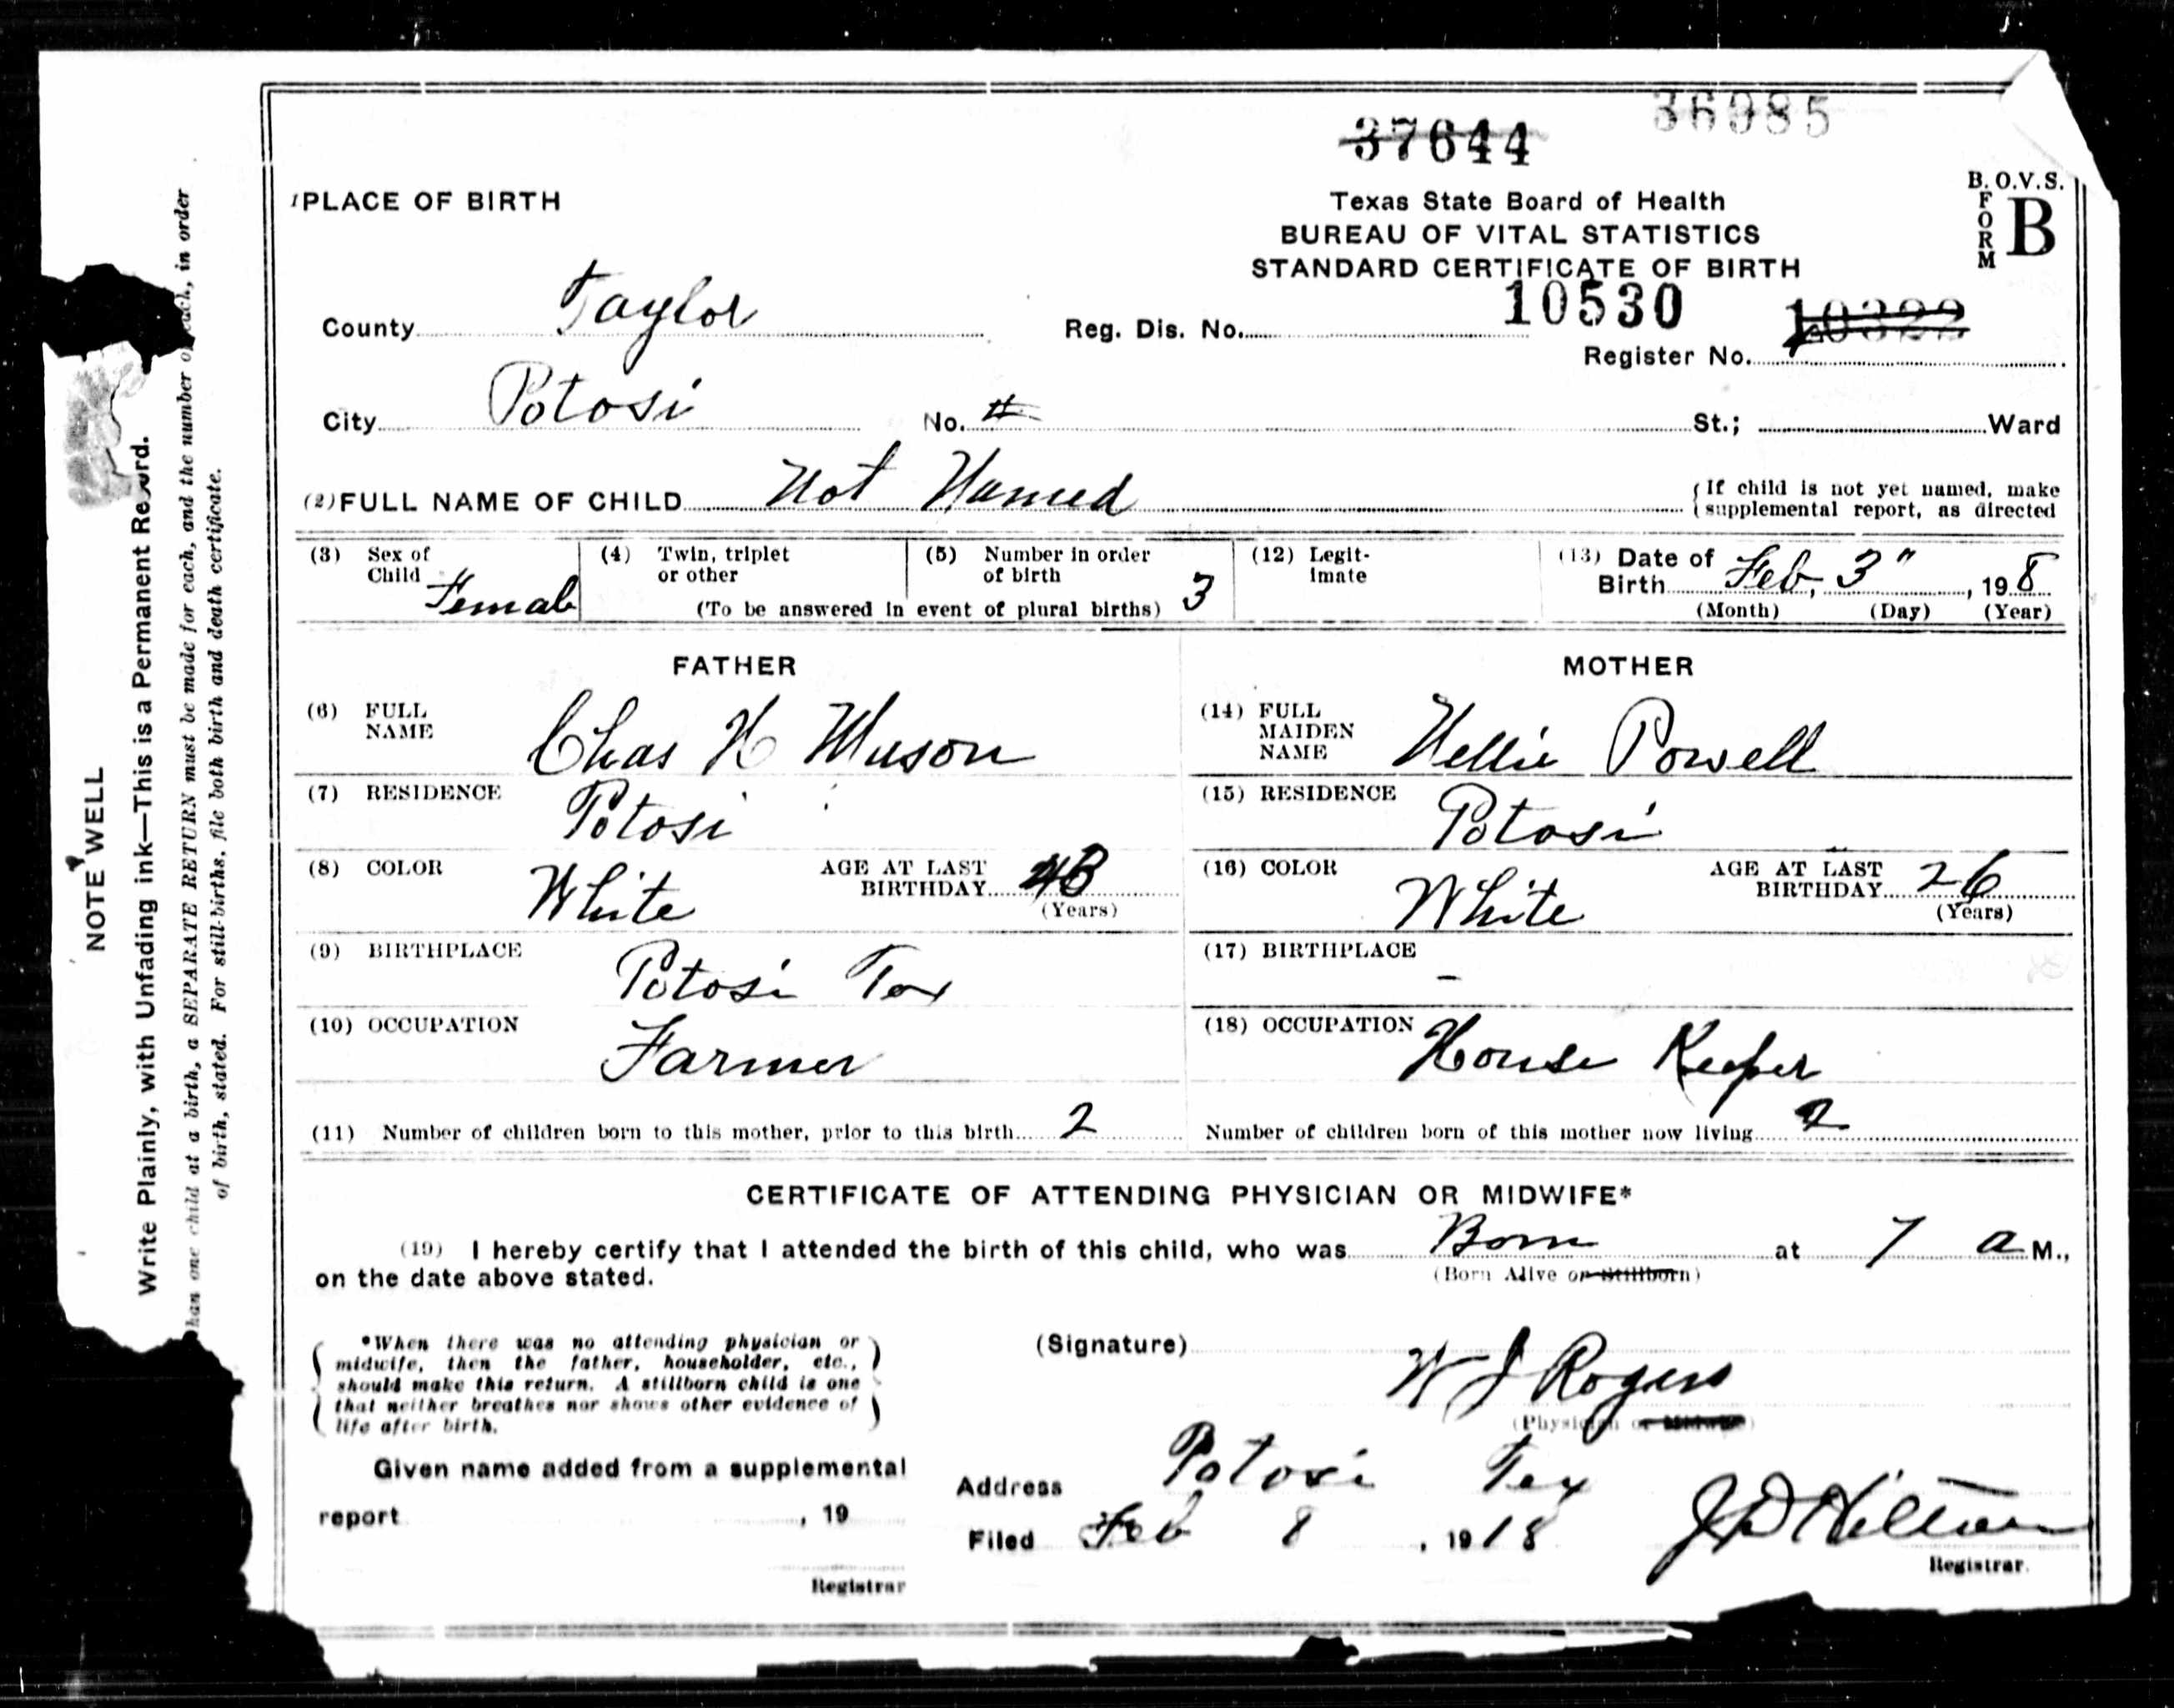 37644 36985
1 PLACE OF BIRTH
Texas State Board of Health
BUREAU OF VITAL STATISTICS
STANDARD CERTIFICATE OF BIRTH
B.O.V.S. FORM B
County Taylor Reg. Dis. No. 10530 10322
Register No.
City Potosi No. # St.; Ward
(2) FULL NAME OF CHILD Not Named
{If child is not yet named, make
supplemental report, as directed
(3) Sex of Child Female
(4) Twin, triplet or other
(5) Number in order of birth 3
(To be answered in event of plural births)
(12) Legitimate
(13) Date of Birth Feb, 3", 198
(Month) (Day) (Year)
FATHER
(6) FULL NAME Chas H
(7) RESIDENCE Potosi
(8) COLOR White AGE AT LAST BIRTHDAY
(Years)
(9) BIRTHPLACE Potosi Tex
(10) OCCUPATION Farmer
(11) Number of children born to this mother, prior to this birth 2
MOTHER
(14) FULL MAIDEN NAME Nellie Powell
(15) RESIDENCE Potosi
(16) COLOR White AGE AT LAST BIRTHDAY 26
(Years)
(17) BIRTHPLACE -
(18) OCCUPATION House Keeper
Number of children born of this mother now living 2
CERTIFICATE OF ATTENDING PHYSICIAN OR MIDWIFE*
(19) I hereby certify that I attended the birth of this child, who was Born at 7 a M.,
(Born Alive or Stillborn)
on the date above stated.
*When there was no attending physician or
midwife, then the father, householder, etc.,
should make this return. A stillborn child is one
that neither breathes nor shows other evidence of
life after birth.
(Signature) W J Rogers
(Physician or Midwife)
Given name added from a supplemental
report , 19
Registrar
Address Potosi Tex
Filed Feb 8, 1918 J D
Registrar.
NOTE WELL
Write Plainly, with Unfading ink—This is a Permanent Record.
than one child at a birth, a SEPARATE RETURN must be made for each, and the number of each, in order
of birth, stated. For still-births, file both birth and death certificate.